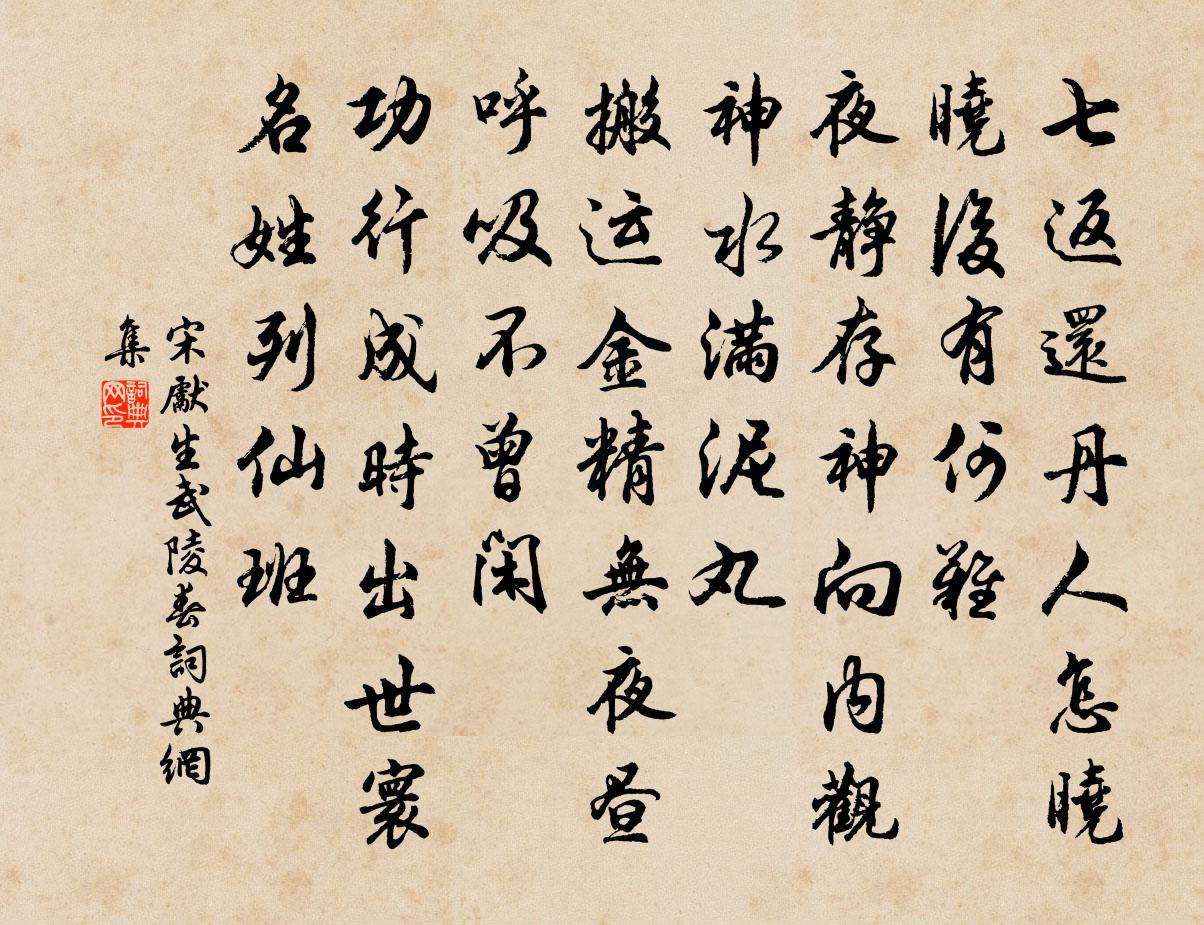 七返還丹人怎曉
曉後有何難
夜靜存神向内觀
神水滿泥丸
搬运金精無夜昼
呼吸不曾闲
功行成時出世寰
名姓列仙班
宋獻生武陵春詞典網
集
詞典网印